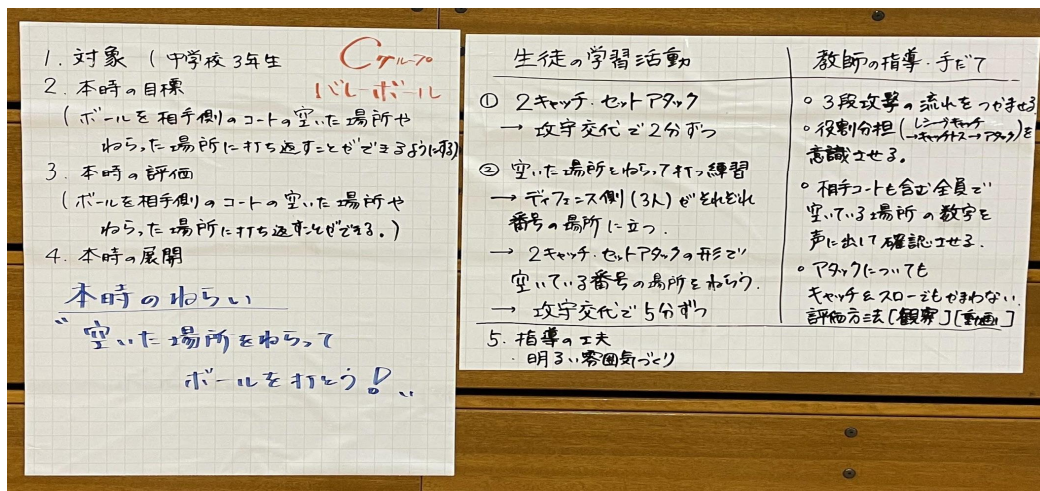 Cグループ
バレーボール
1. 対象 (中学校3年生
2. 本時の目標
(ボールを相手側のコートの空いた場所や
ねらった場所に打ち返すことができるようにする)
3. 本時の評価
(ボールを相手側のコートの空いた場所や
ねらった場所に打ち返すことができる。)
4. 本時の展開
本時のねらい
〝空いた場所をねらって
ボールを打とう!〟
生徒の学習活動
① 2キャッチ・セットアタック
→ 攻守交代で2分ずつ
② 空いた場所をねらって打つ練習
→ ディフェンス側(3人)がそれぞれ
番号の場所に立つ.
→ 2キャッチ・セットアタックの形で
空いている番号の場所をねらう.
→ 攻守交代で5分ずつ
教師の指導・手だて
○ 3段攻撃の流れをつかませる
○ 役割分担(レシーブキャッチ
→キャッチトス→アタック)を
意識させる。
○ 相手コートも含む全員で
空いている場所の数字を
声に出して確認させる.
○ アタックについても
キャッチ&スローでもかまわない.
評価方法[観察][動画]
5. 指導の工夫
・明るい雰囲気づくり